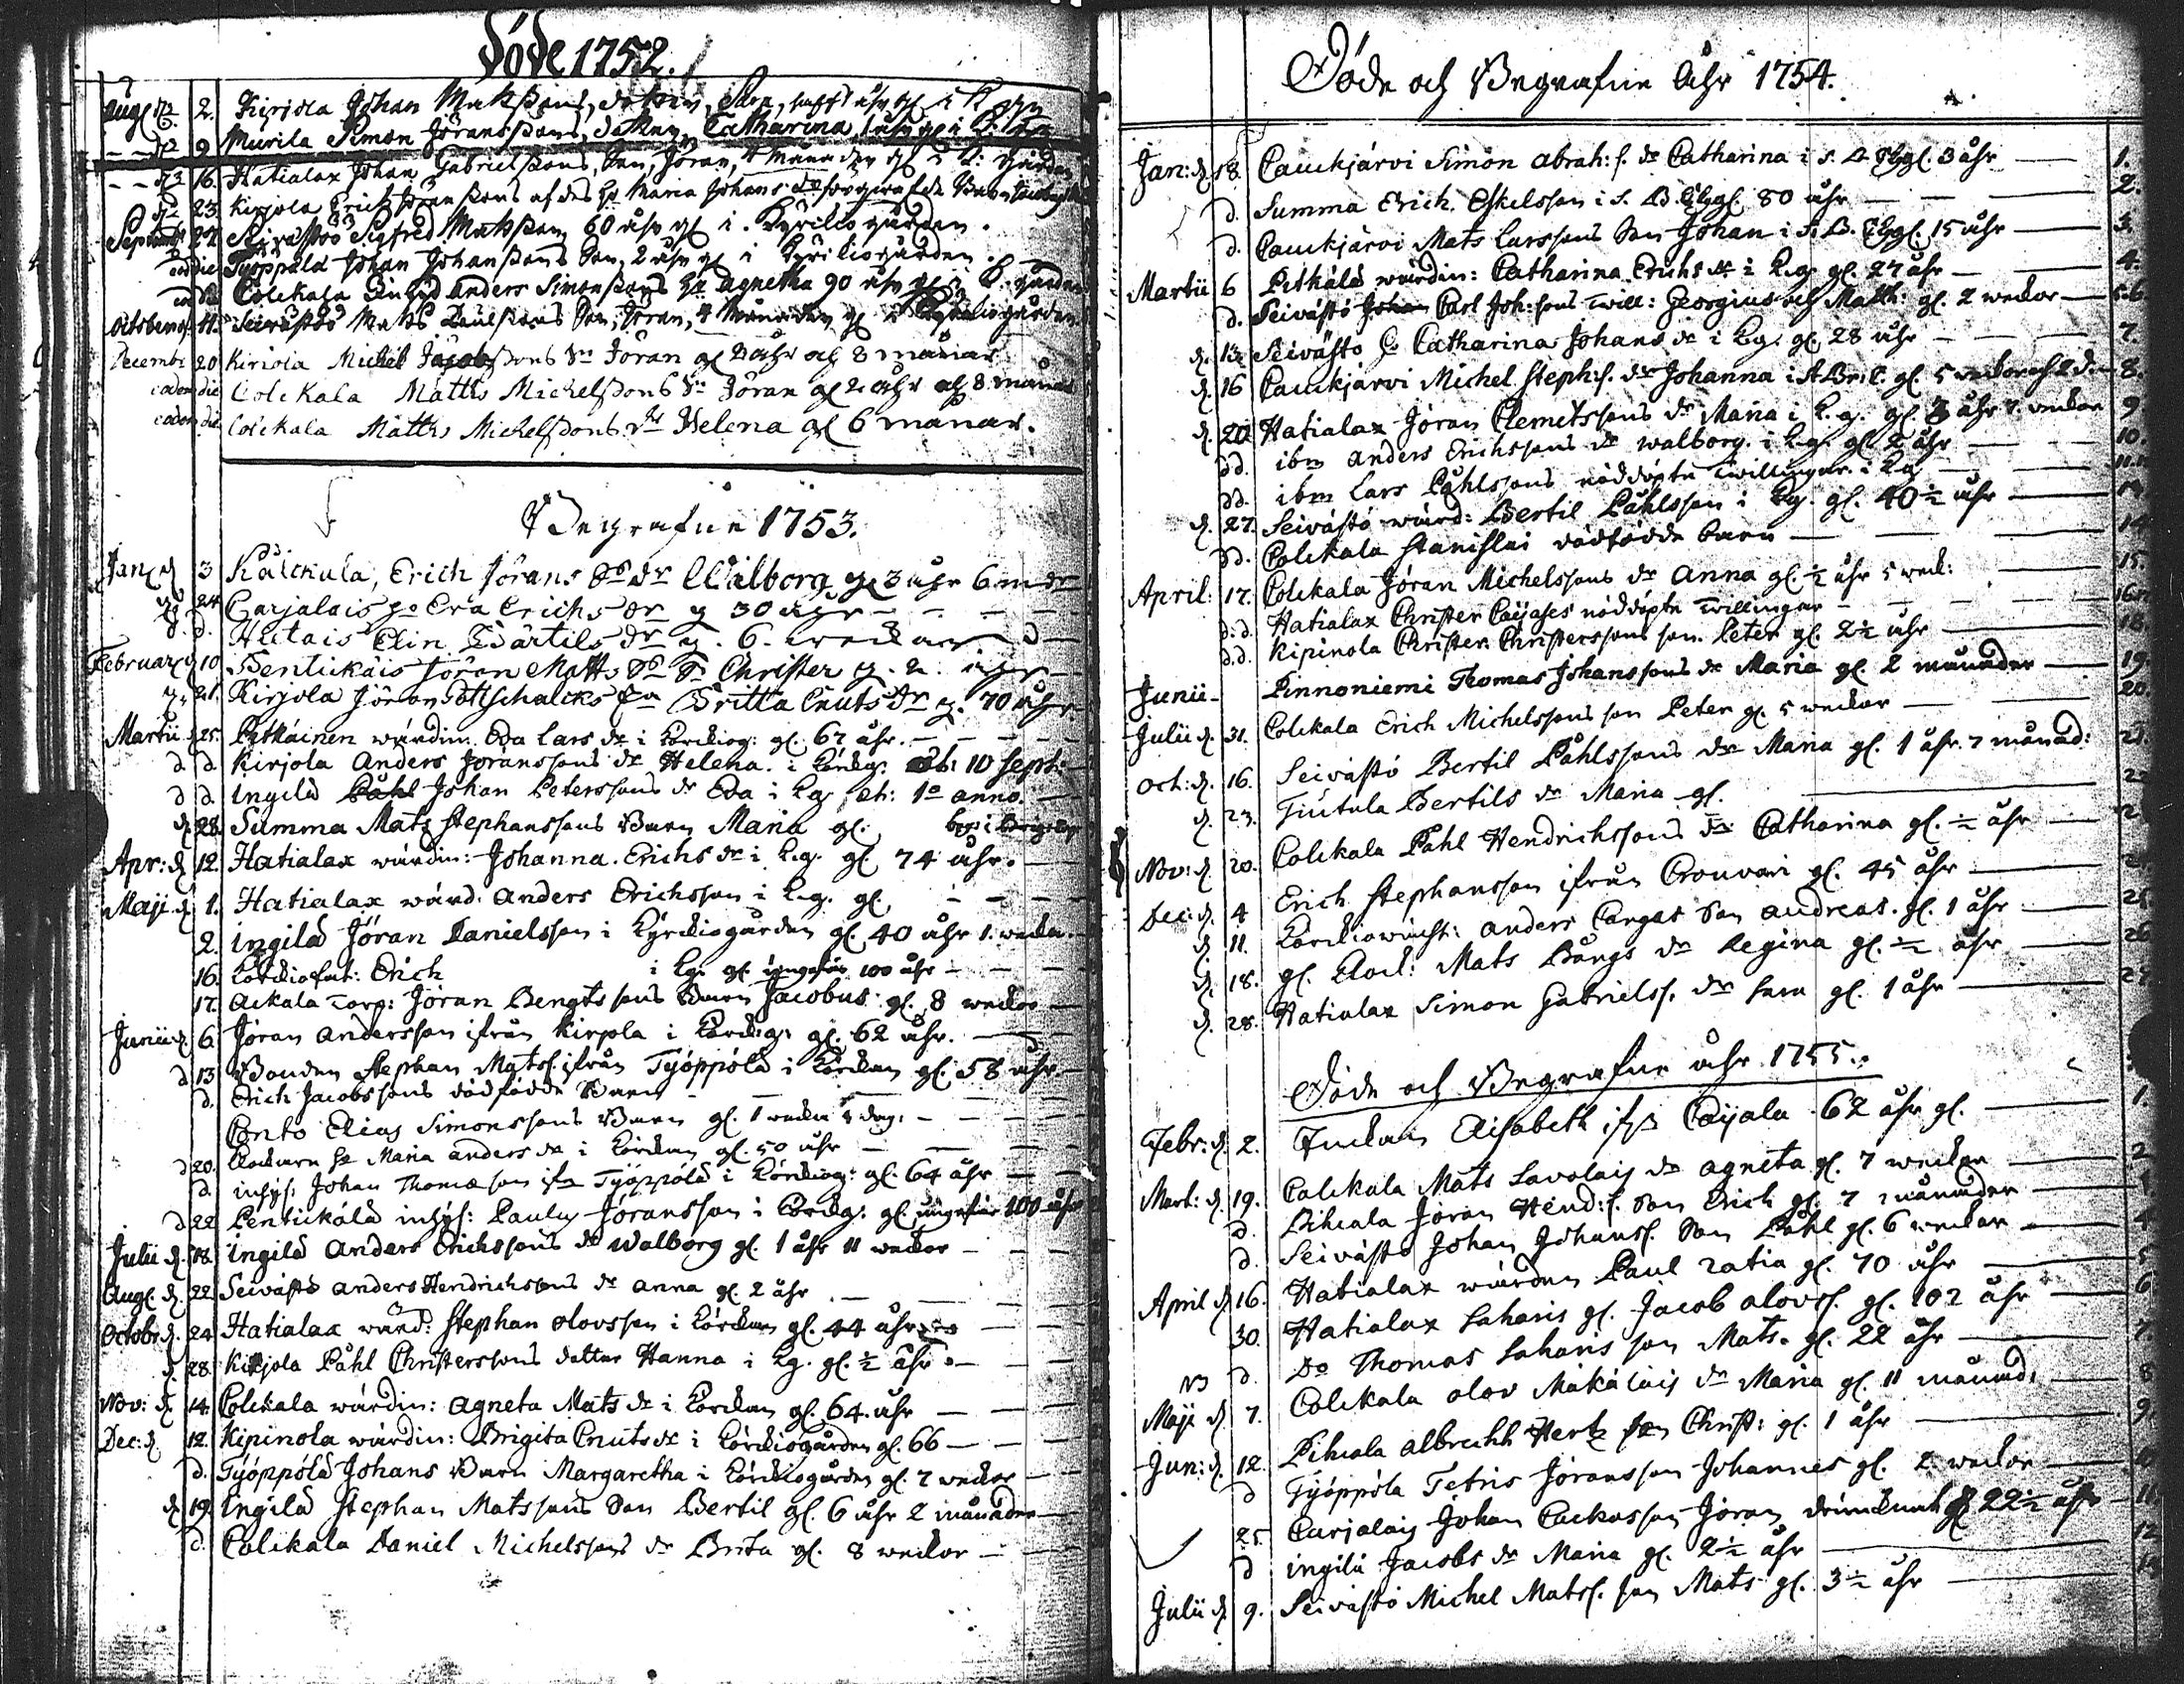 Döde 1752.
Aug. d. 2. Kirjola Johan Matssons, dotter, Sara, halft åhr gl i K. gn
- - d. 9 Muurila Simon Jöranssons, dotter, Catharina, 1 åhr gl i K. gn
- - d. 16. Hatialax Johan Gabrielssons, Son, Jöran, 4 månader gl i K: gården
d. 23. Kirjola Erich Jöranssons Hu Maria Johans dr
Septemb. 27. Seivästö Sigfred Matsson 60 åhr gl i Kyrkiogården.
eodie Työppölä Johan Johanssons Son, 2 åhr gl i Kyrkiogården.
Colckala Anders Simonssons Hu Agnetha 90 åhr gl i K. gården
Octobr. 11. Seivästöö Mats Paulssons Son, Jöran, 4 Månader gl i Kyrkiogården
Decembr 20 Kiriola Michel Jacobssons Sn Jöran gl 2 åhr och 8 månar
eadem die Colckala Matths Michelssons Sn Jöran gl 2 åhr och 8 månar
eadem die Colckala Matths Michelssons dr Helena gl 6 månar.
Begrafne 1753.
Jan. d 3 Kålckula, Erich Jörans So dr Walborg gl 3 åhr 6 mdr
d. 24 Carjalais hu Eva Erichs dr g 30 åhr - - -
d. d. Hutais Elin Bärtils dr g. 6. weckor
Februar. d 10 Bentickäis Jöran Matts So Sn Christer g. 2. åhr
d. 21. Kirjola Jöran Pottschalcks Ea Britta Cnuts dr g. 70 åhr
Martii d. 25. Pitkäinen wärdin. Eva Lars dr i Körckiog: gl. 67 åhr. - - -
d d Kirjola Anders Joranssons dr Helena. i Körckg: ob: 10 Sept: -
d d. Ingilä Påhl Johan Peterssons dr Eva i Kg æt: 1o anno. -
d. 28. Summa Mats Stephanssons Barn Maria gl. begr: i Körckiog
Apr: d. 12. Hatialax wärdin: Johanna. Erichs dr i K.g. gl. 74 åhr.
Maji d. 1. Hatialax wärd. Anders Erichsson i K.g. gl. - - -
2. Ingilä Jöran Danielsson i Kyrckiogården gl. 40 åhr 1. wecka. -
16. Körckiofat: Erich i Kg: gl. ungefär 100 åhr - - -
17. Ackala Torp: Jöran Bengtssons Barn Jacobus gl. 8 weckor -
Junii d. 6. Jöran Andersson ifrån Kirjola i Körckg: gl. 62 åhr. -
d 13 Bonden Stephan Matss. ifrån Työppölä i Körckan gl. 58 åhr
d. Erich Jacobssons dödfödde Barn - - -
Conto Elias Simonssons Barn gl. 1 wecka 4 dag: - - -
d 20. Klockarn Hu Maria Anders dr i Körckan gl. 50 åhr - - -
d. inhys: Johan Thomæson ifrn Työppölä i Körckiog: gl. 64 åhr - -
d 22 Pentickälä inhys: Paulus Jöransson i Körckg: gl. ungefär 100 åhr
Julii d. 18. Ingilä Anders Erichssons dr Walborg gl. 1 åhr 11 weckor - - -
Aug. d. 22. Seivästö Anders Hendrichssons dr Anna gl. 2 åhr . - - -
Octobr. d. 24 Hatialax wärd: Stephan Olovsson i Körckan gl. 44 åhr - - -
d. 28. Kirjola Påhl Christerssons dotter Hanna i Kg. gl. ½ åhr. - - -
Nov: d. 14. Colckala wärdin: Agneta Mats dr i Körckan gl. 64. åhr - - -
Dec: d. 12. Kipinola wärdin: Brigita Cnuts dr i Körckiogården gl. 66 - - -
d. Työppölä Johans Barn Margaretha i Körckiogården gl. 7 weckor - -
d. 19. Ingilä Stephan Matssons Son Bertil gl. 6 åhr 2 månader -
d. Colckala Daniel Michelssons dr Brita gl. 8 weckor - - -
Döde och Begrafne Åhr 1754.
Jan: d. 18. Cauckjärvi Simon Abrah: s. dr Catharina i S. B. Capl. 3 åhr - 1.
d. Summa Erich Eskelsson i S. B. Capl. 80 åhr - - - 2.
d. Cauckjärvi Mats Larssons Son Johan i S. B. Capl. 15 åhr - 3.
Martii 6 Pitkälä wärdin: Catharina Erichs dr i K.g. gl. 27 åhr - 4.
d. Seivästö Johan Carl Joh: sons twill: Georgius och Matth: gl. 2 weckor - 5.6.
d. 13 Seivästo Hu Catharina Johans dr i Kg. gl. 28 åhr - 7.
d. 16 Cauckjärvi Michel Steph: s. dr Johanna gl. 5 weckor och 2 d. - 8.
d. 20 Hatialax Jöran Clemetssons dr Maria i K.g. gl. 3 åhr 7. weckor 9
dd. ibm Anders Erichssons dr Walborg. i K.g. gl. 2 åhr - - 10.
dd. ibm Lars Påhlssons nöddöpte Twillingar i Kg - 11.
d. 27. Seivästö wärd: Bertil Påhlsson i Kg. gl. 40 ½ åhr - 13.
dd. Colckala Stanislai dödfödde barn - - - 14
April: 17. Colckala Jöran Michelssons dr Anna gl. ½ åhr 5 weck: - 15.
d.d. Hatialax Christer Caijases nöddöpte Twillingar - - - 16.17
d.d. Kipinola Christer Christerssons son Peter gl. 2½ åhr - 18.
Junii - Pinnoniemi Thomas Johanssons dr Maria gl. 2 månader - 19.
Julii d. 31. Colckala Erich Michelssons son Peter gl. 5 weckor - 20.
Oct: d. 16. Seivästö Bertil Påhlssons dr Maria gl. 1 åhr. 7 månad: 21.
d. 23. Tiutula Bertils dr Maria gl. - 22
Nov: d. 20. Colckala Påhl Hendrichssons dr Catharina gl. ½ åhr - 2
Dec: d. 4 Erich Stephansson ifrån Crouvari gl. 45 åhr - 24
d. 11. Körckiowächt: Anders Cargas Son Andreas. gl. 1 åhr - 25
d. 18. gl. Klock: Mats Bångs dr Regina gl. ½ åhr - 26
d. 28. Hatialax Simon Gabrielss. dr Sara gl. 1 åhr - 27
Döde och Begrafne åhr 1755.
Febr: d. 2. Enckan Elisabeth ifrn Caijala 62 åhr gl. - 1.
Mart: d. 19. Colckala Mats Savolais dr Agneta gl. 7 weckor - 2
d. Pihcala Jöran Hend: s. Son Erich gl. 7 månader -
d. Seivästö Johan Johanss. Son Påhl gl. 6 weckor - 4
April d. 16. Hatialax wärden Paul Ratia gl. 70 åhr - 5
30. Hatialax Saharis gl. Jacob Olovss. gl. 102 åhr - 6
NB d. Do Thomas Saharis son Mats. gl. 22 åhr - 7.
Maji d. 7. Colckala Olov Mäkäläis dr Maria gl. 11 månad: - 8
Jun: d. 12. Pihcala Albrecht Hertz son Christ: gl. 1 åhr - 9.
d Työppölä Tetris Jöransson Johannes gl. 2 weckor - 10
25. Carjalais Johan Cackosson Jöran drunknat gl. 22½ åhr - 11
d Ingilä Jacobs dr Maria gl. 2½ åhr - 12
Julii d. 9. Seivästö Michel Matss. son Mats gl. 3½ åhr - 13